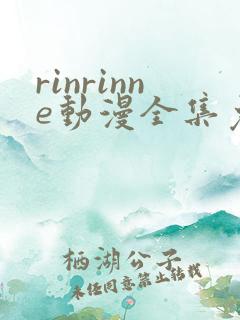 rinrinn
e動漫全集
栖湖公子
未任同意禁止轉載